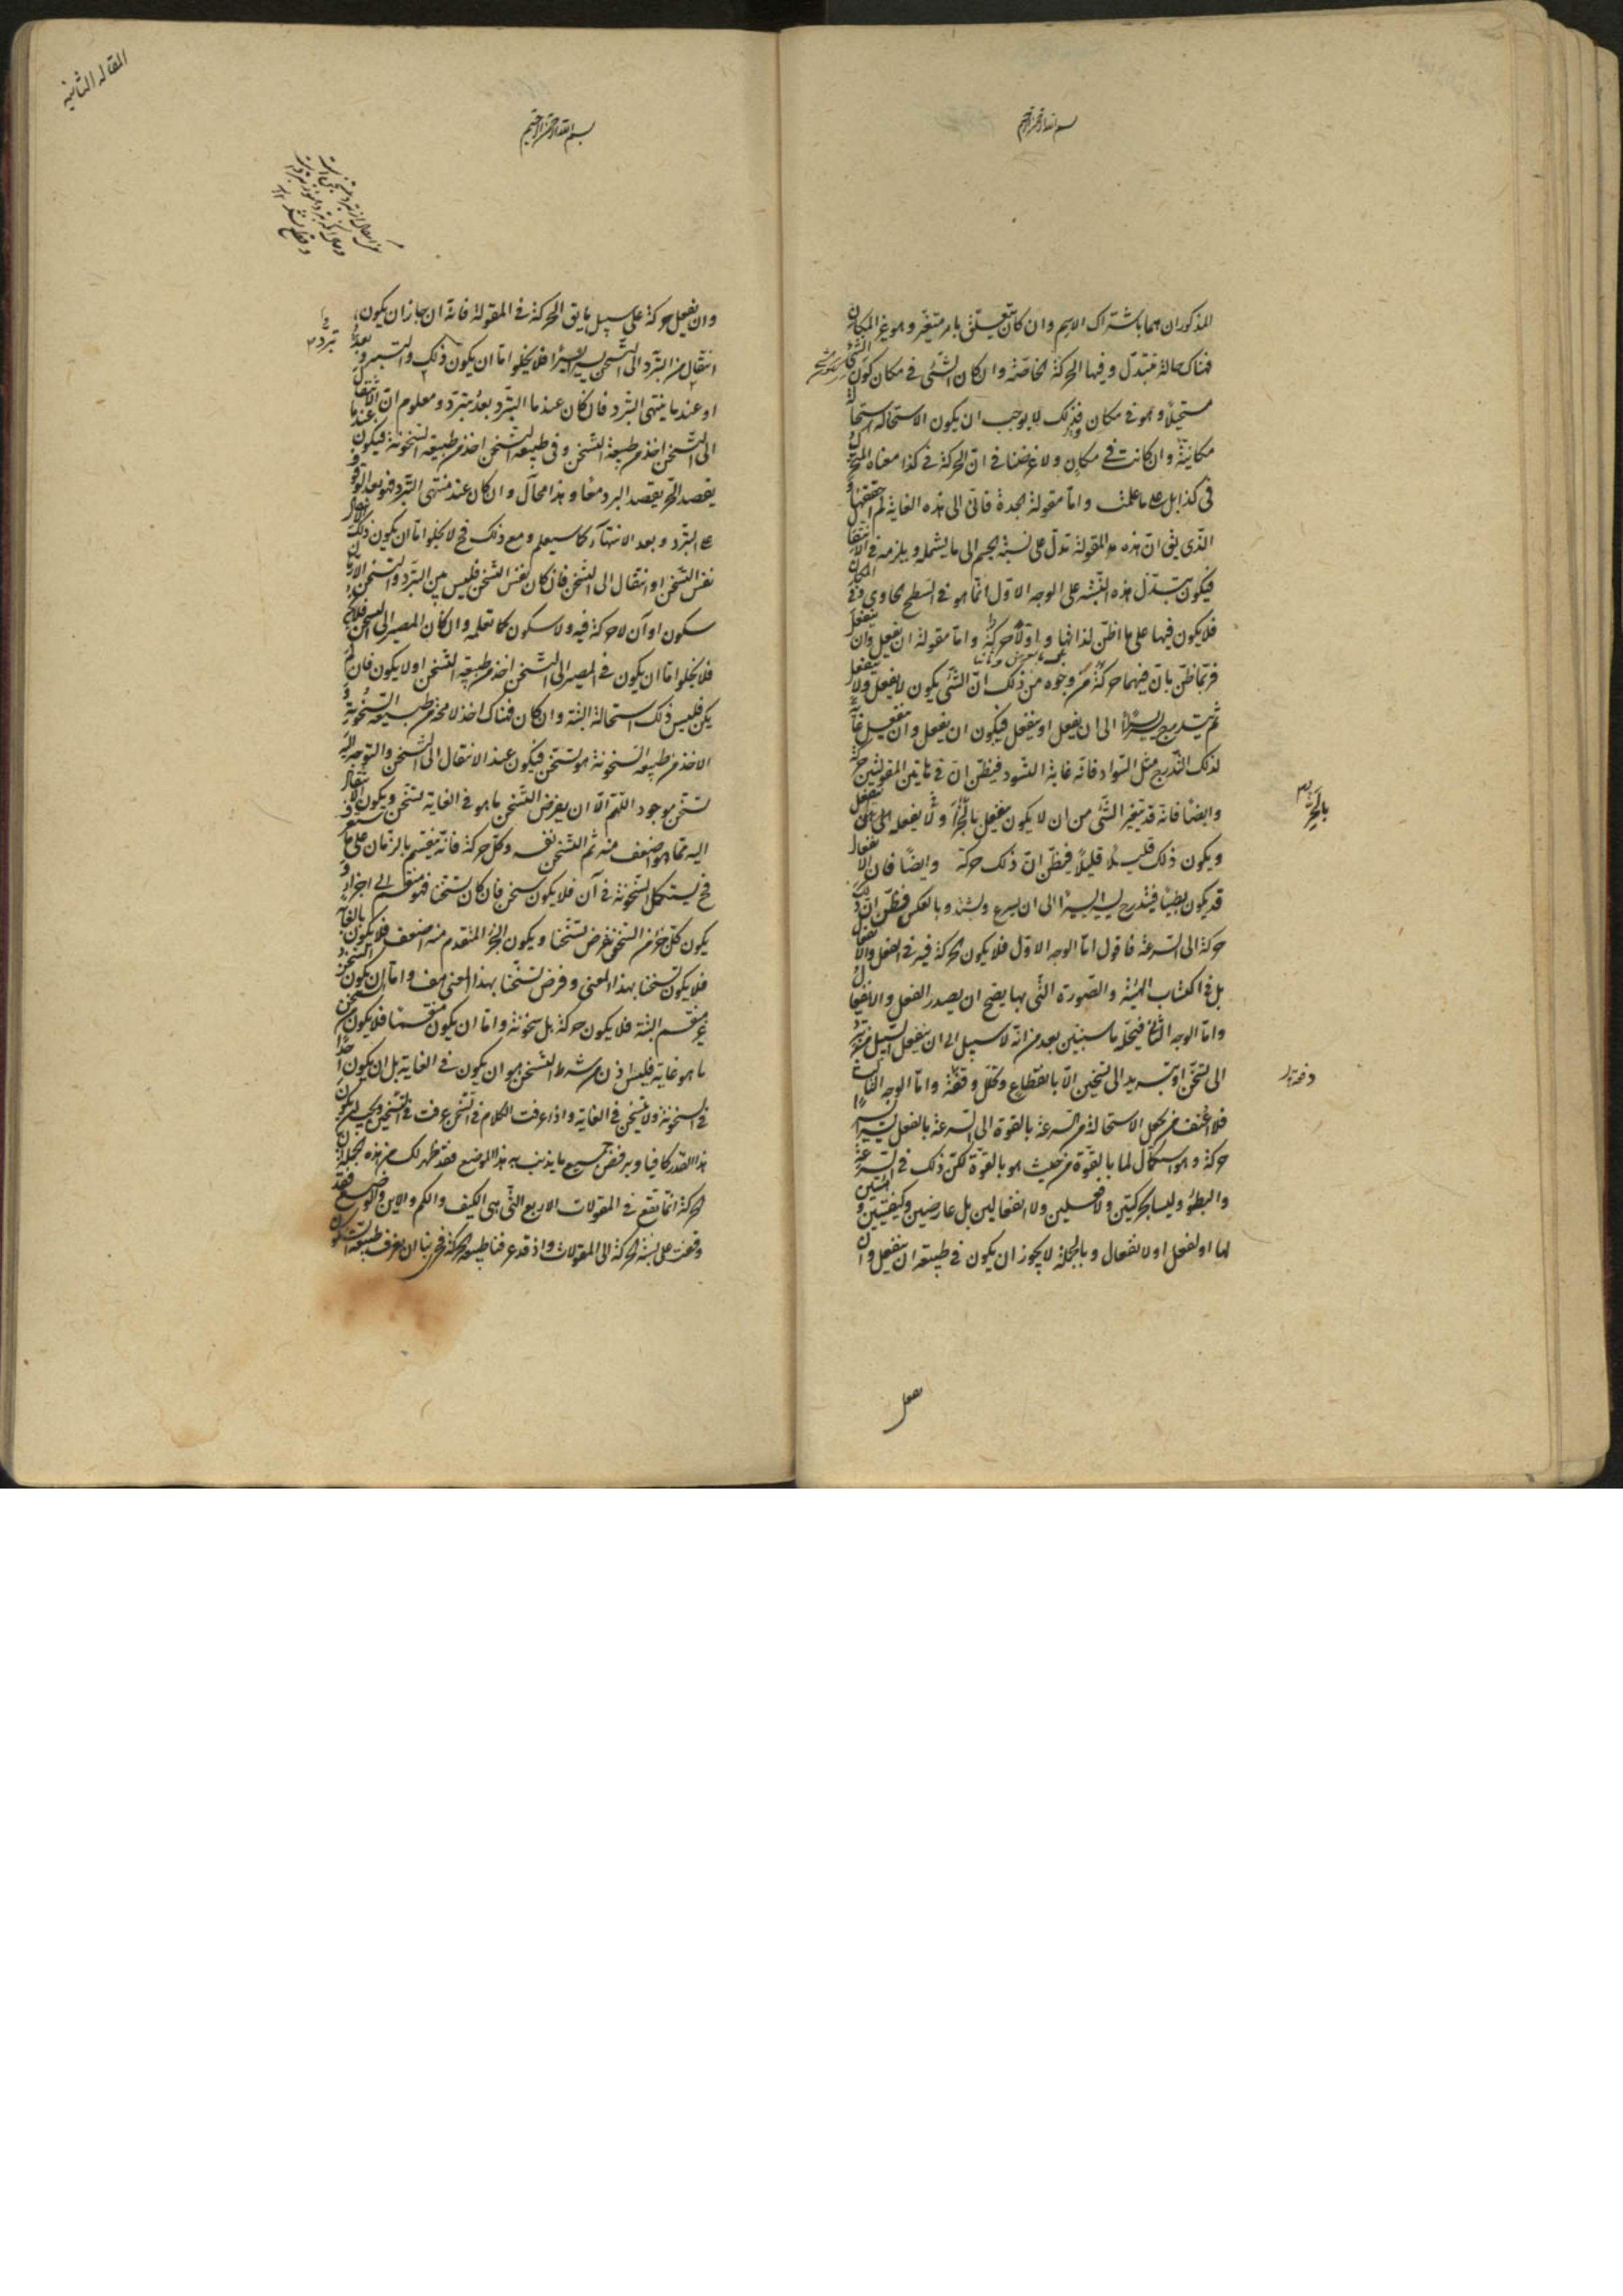 بسم الله الرحمن الرحيم
المذكوران هما باشتراك الاسم وان كان يتعلق بامر متغير وهو غير المكان
فهناك حالة تتبدل وفيها الحركة الخاصة وان كان الشئ فى مكان كون الشئ
مستحيلا وهو فى مكان فذلك لا يوجب ان يكون الاستحاله استحالة
مكانية وان كانت فى مكان ولا غرضنا فى ان الحركة فى كذا معناه المتحرك
فى كذا بل على ما علمت واما مقولة الجدة فانى الى هذه الغاية لم اتحققها و
الذى يق ان هذه المقولة تدل على نسبة الجسم الى ما يشمله ويلزمه فى الانتقال
فيكون تبدل هذه النسبة على الوجه الاول انما هو فى السطح الحاوى وفى المكان
فلا يكون فيها على ما اظن لذاتها واولا حركة واما مقولة ان يفعل وان ينفعل
فربما ظن بان فيهما حركة من وجوه من ذلك ان الشئ يكون لا يفعل ولا ينفعل
ثم يتدرج يسيرا الى ان يفعل او ينفعل فيكون ان يفعل وان ينفعل غاية
لذلك التدرج مثل السواد فانه غاية التسود فيظن ان فى هاتين المقولتين حركة
وايضا فانه قد يتغير الشئ من ان لا يكون ينفعل بالجزء
ويكون ذلك قليلا قليلا فيظن ان ذلك حركة وايضا فان الانفعال
قد يكون بطيئا فيتدرج يسيرا يسيرا الى ان يسرع ويشتد وبالعكس فيظن ان ذلك
حركة الى السرعة فاقول اما الوجه الاول فلا يكون الحركة فيه فى الفعل والانفعال
بل فى اكتساب الهيئة والصورة التى بها يصح ان يصدر الفعل والانفعال
واما الوجه الثانى فيحله ما سنبين بعد من انه لا سبيل الى ان ينفعل
الى تسخن او تبريد الى تسخين الا بانقطاع وتخلل وقفة واما الوجه الثالث
فلا من يجعل الاستحالة من السرعة بالقوة الى السرعة بالفعل يسيرا يسيرا
حركة وهو استكمال لما بالقوة من حيث هو بالقوة لكن ذلك فى السرعة
والبطؤ وليسا بحركتين ولا فعلين ولا انفعالين بل عارضين وكيفيتين او هيئتين
لها او لفعل او لانفعال وبالجملة لا يجوز ان يكون فى طبيعة ان ينفعل وان
يفعل
دفعة
المقالة الثانية
بسم الله الرحمن الرحيم
وان يفعل حركة على سبيل ما يق الحركة فى المقولة فانه ان جاز ان يكون
انتقال من التبرد الى التسخن يسيرا يسيرا فلا يخلوا اما ان يكون ذلك والتبرد بعد
تبرد
او عند ما ينتهى التبرد فان كان عند ما التبرد بعد تبرد ومعلوم ان الانتقال
الى التسخن اخذ من طبيعة التسخن وفى طبيعة التسخن اخذ من طبيعة السخونة فيكون عند ما
يقصد الحر يقصد البرد معا وهذا محال وان كان عند منتهى التبرد فهو بعد الوقوف
على التبرد وبعد الانتهاء كما سيعلم ومع ذلك فح لا يخلوا اما ان يكون ذلك
نفس التسخن او انتقال الى التسخن فان كان نفس التسخن فليس بين التبرد والتسخن الا زمان
سكون او آن لا حركة فيه ولا سكون كما تعلمه وان كان المصير الى التسخن
فلا يخلوا اما ان يكون فى المصير الى التسخن اخذ من طبيعة التسخن او لا يكون فان لم
يكن فليس ذلك استحالة البتة وان كان فهناك اخذ لا محة من طبيعة السخونة و
الاخذ من طبيعة السخونة هو تسخن فيكون عند الانتقال الى التسخن والتوجه اليه
تسخن موجود اللهم الا ان يفرض التسخن ما هو فى الغاية تسخن ويكون الانتقال
اليه مما هو اضعف منه ثم التسخن نفسه وكل حركة فانه ينقسم بالزمان على ما ستعرف
فح يستكمل السخونة فى آن فلا يكون تسخن فان كان تسخنا فهو منقسم الى اجزاء و
يكون كل جزء من التسخن نفرض تسخنا ويكون الجزء المتقدم منه اضعف فلا يكون بالغاية
فلا يكون تسخنا بهذا المعنى وفرض تسخنا بهذا المعنى هف واما ان يكون التسخن
غير منقسم البتة فلا يكون حركة بل سخونة واما ان يكون منقسما فلا يكون من التسخن
ما هو غاية فليس اذن من شرط التسخن هو ان يكون فى الغاية بل ان يكون اخذا
فى السخونة ولا يتسخن فى الغاية واذا عرفت الكلام فى التسخن عرفت فى التسخين ويجب ان يكون
هذا القدر كافيا ويرفض جميع ما يذنب به هذا الموضع فقد ظهر لك من هذه الجملة ان
الحركة انما تقع فى المقولات الاربع التى هى الكيف والكم والاين والوضع فقد
وقفت على نسبة الحركة الى المقولات واذ قد عرفنا طبيعة الحركة فحرى بنا ان نعرف طبيعة السكون